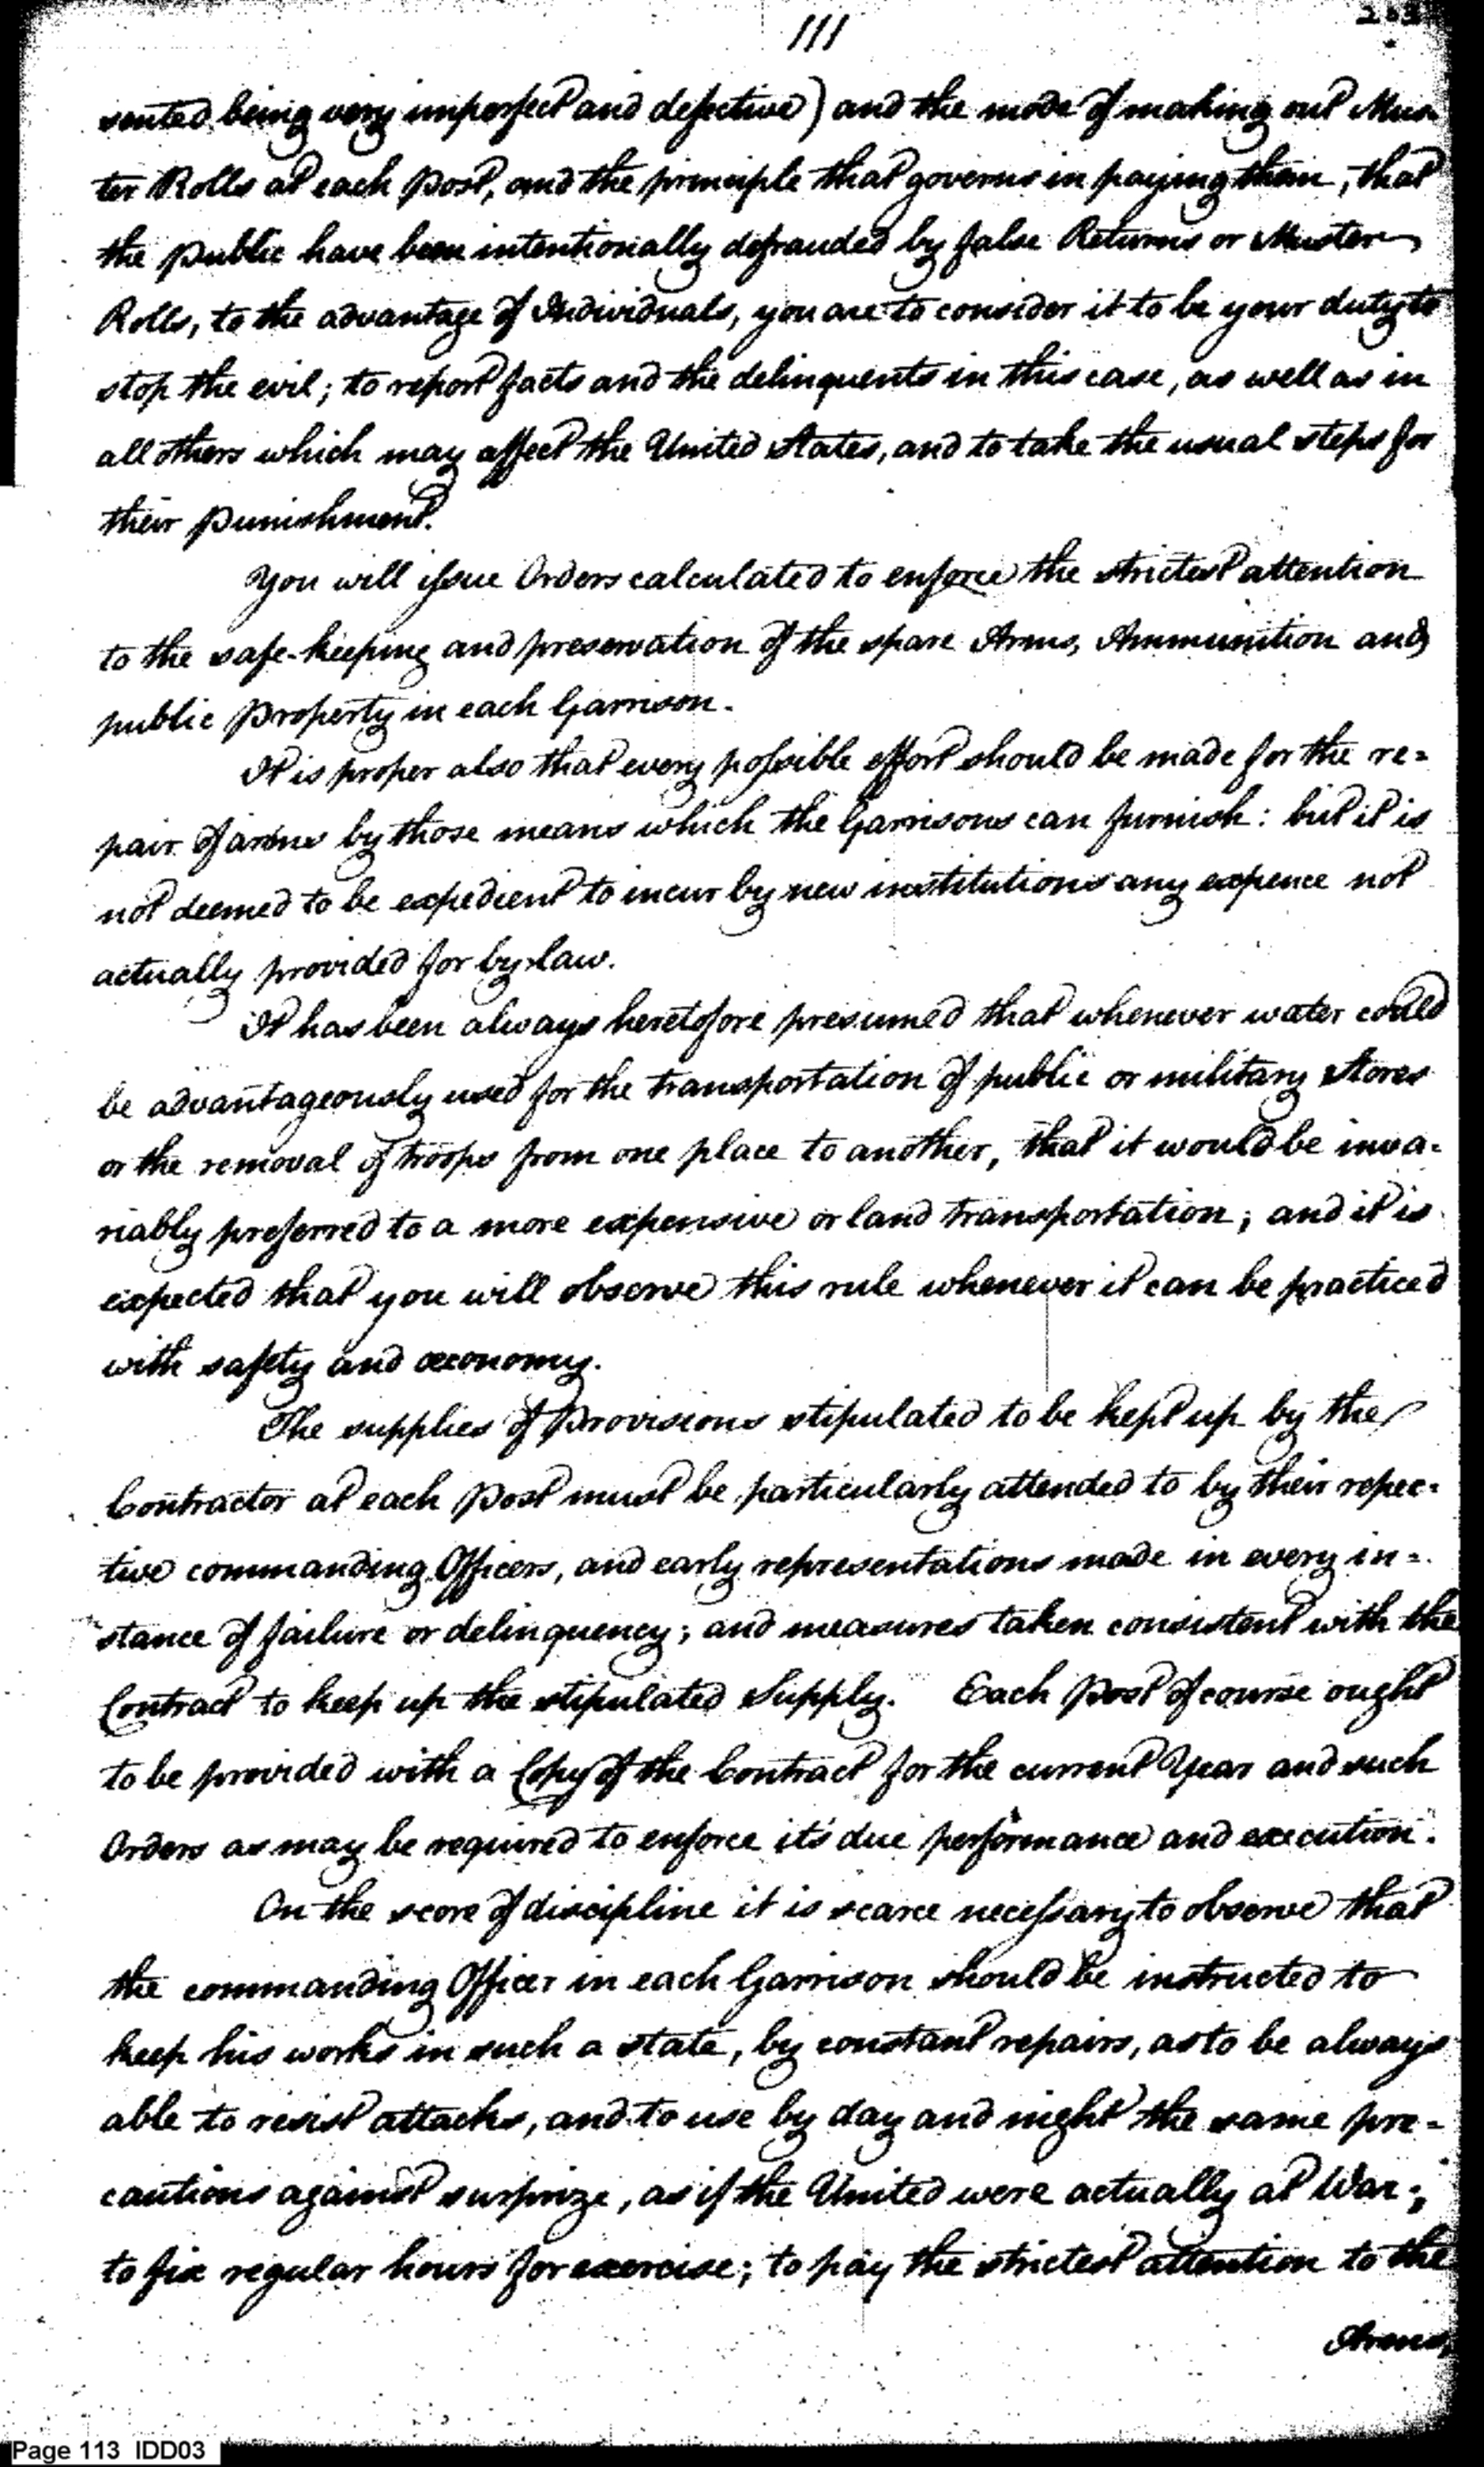 111
sented being very imperfect and defective) and the mode of making out Mus-
ter Rolls at each Post, and the principle that governs in paying them, that
the Public have been intentionally defrauded by false Returns or Muster
Rolls, to the advantage of Individuals, you are to consider it to be your duty to
stop the evil; to report facts and the delinquents in this case, as well as in
all others which may affect the United States, and to take the usual steps for
their Punishment.
You will issue Orders calculated to enforce the strictest attention
to the safe-keeping and preservation of the spare Arms, Ammunition and
public Property in each Garrison.
It is proper also that every possible effort should be made for the re=
pair of arms by those means which the Garrisons can furnish: but it is
not deemed to be expedient to incur by new institutions any expence not
actually provided for by law.
It has been always heretofore presumed that whenever water could
be advantageously used for the transportation of public or military Stores
or the removal of troops from one place to another, that it would be inva=
riably preferred to a more expensive or land transportation; and it is
expected that you will observe this rule whenever it can be practiced
with safety and œconomy.
The supplies of Provisions stipulated to be kept up by the
Contractor at each Post must be particularly attended to by their repec=
tive commanding Officers, and early representations made in every in=
stance of failure or delinquency; and measures taken consistent with the
Contract to keep up the stipulated Supply. Each Post of course ought
to be provided with a Copy of the Contract for the current Year and such
Orders as may be required to enforce it's due performance and execution.
On the score of discipline it is scarce necessary to observe that
the commanding Officer in each Garrison should be instructed to
keep his works in such a state, by constant repairs, as to be always
able to resist attacks, and to use by day and night the same pre=
cautions against surprize, as if the United were actually at War;
to fix regular hours for exercise; to pay the strictest attention to the
Arms,
Page 113 IDD03